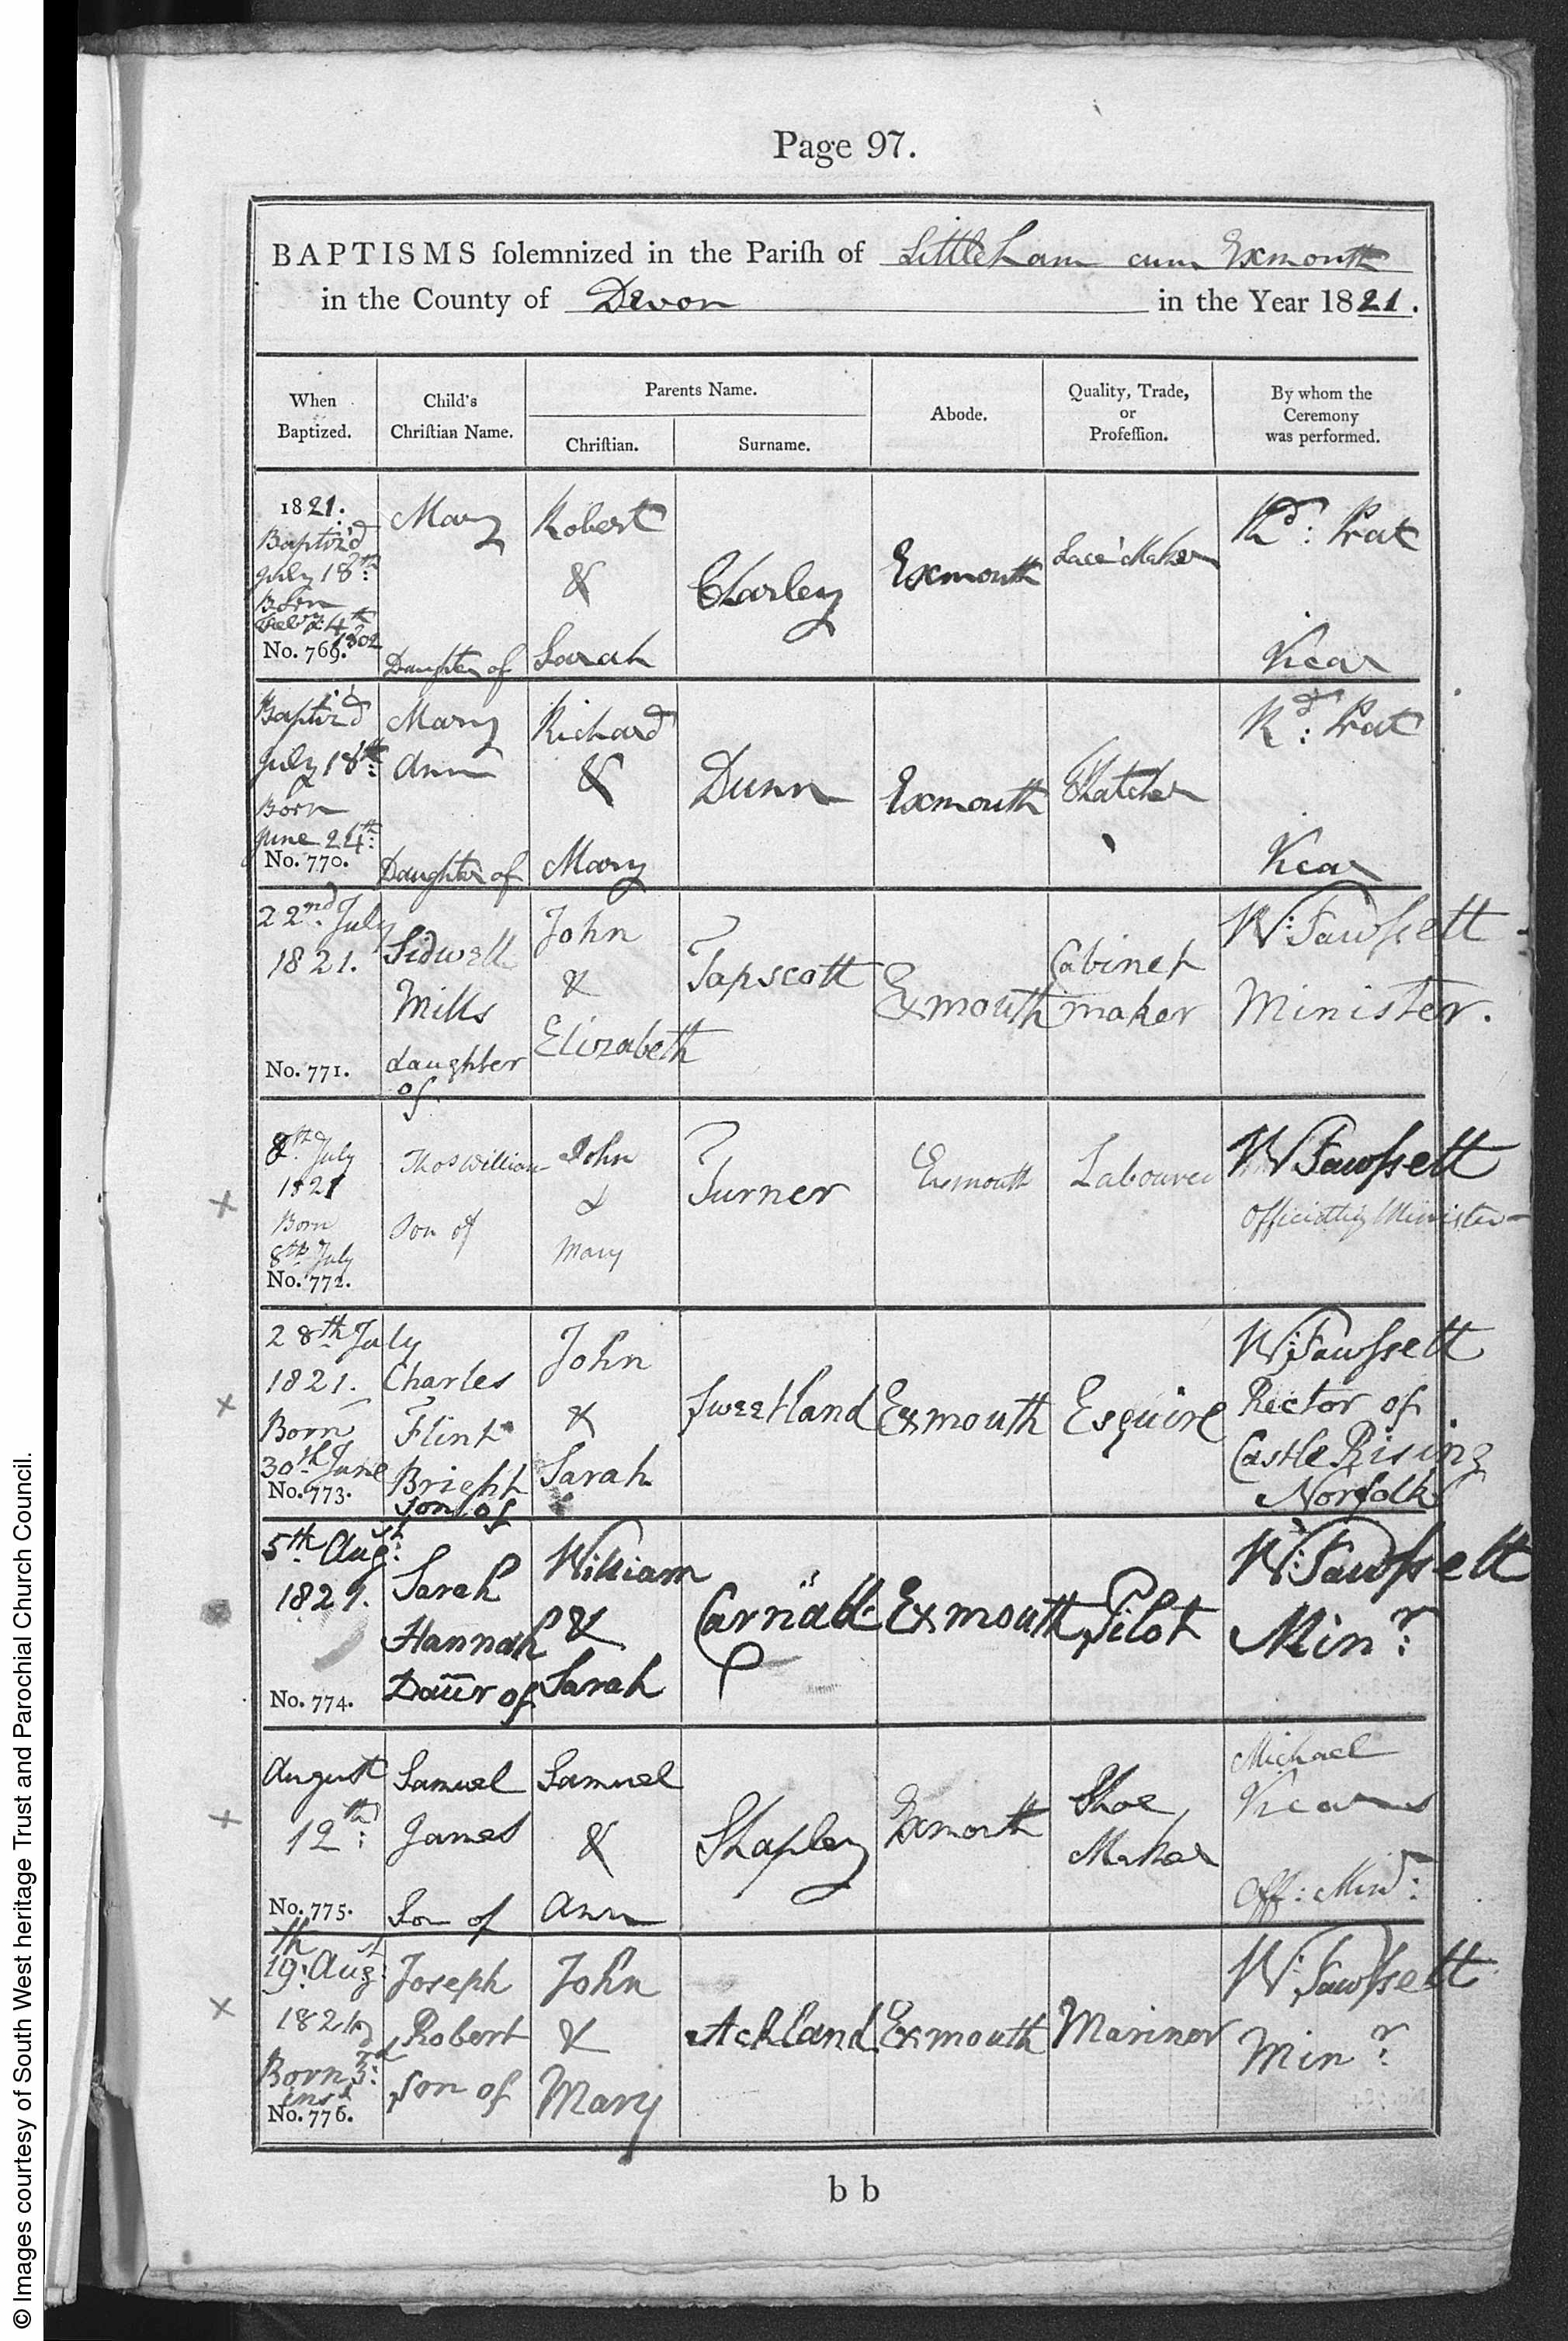 Page 97.
BAPTISMS ſolemnized in the Pariſh of Littleham cum Exmouth
in the County of Devon in the Year 1821.
When
Baptized.
Child's
Chriſtian Name.
Parents Name.
Chriſtian.
Surname.
Abode.
Quality, Trade,
or
Profeſſion.
By whom the
Ceremony
was performed.
1821.
Baptiz'd
July 18th:
Born
Feby 24th
1802
No. 769.
Mary
Daughter of
Robert
&
Sarah
Charley
Exmouth
Lace Maker
Rd: Prat
Vicar
Baptiz'd
July 18th:
Born
June 24th:
No. 770.
Mary
Ann
Daughter of
Richard
&
Mary
Dunn
Exmouth
Thatcher
Rd: Prat
Vicar
22nd July
1821.
No. 771.
Sidwell
Mills
daughter
of
John
&
Elizabeth
Tapscott
Exmouth
Cabinet
maker
W: Fawſsett
Minister.
8th July
1821
Born
8th July
No. 772.
Thos William
Son of
John
&
Mary
Turner
Exmouth
Labourer
W Fawſsett
Officiating Minister
28th July
1821.
Born
30th June
No. 773.
Charles
Flint
Bright
son of
John
&
Sarah
Sweetland
Exmouth
Esquire
W: Fawſsett
Rector of
Castle Rising
Norfolk
5th Augst:
1821.
No. 774.
Sarah
Hannah
Daur of
William
&
Sarah
Exmouth
Pilot
W: Fawſsett
Minr:
August
12th:
No. 775.
Samuel
James
Son of
Samuel
&
Ann
Shapley
Exmouth
Shoe
Maker
Michael
Off: Minr:
19th: Augst:
1821
Born 3rd:
inst
No. 776.
Joseph
Robert
son of
John
&
Mary
Ackland
Exmouth
Mariner
W: Fawſsett
Minr:
b b
© Images courtesy of South West heritage Trust and Parochial Church Council.